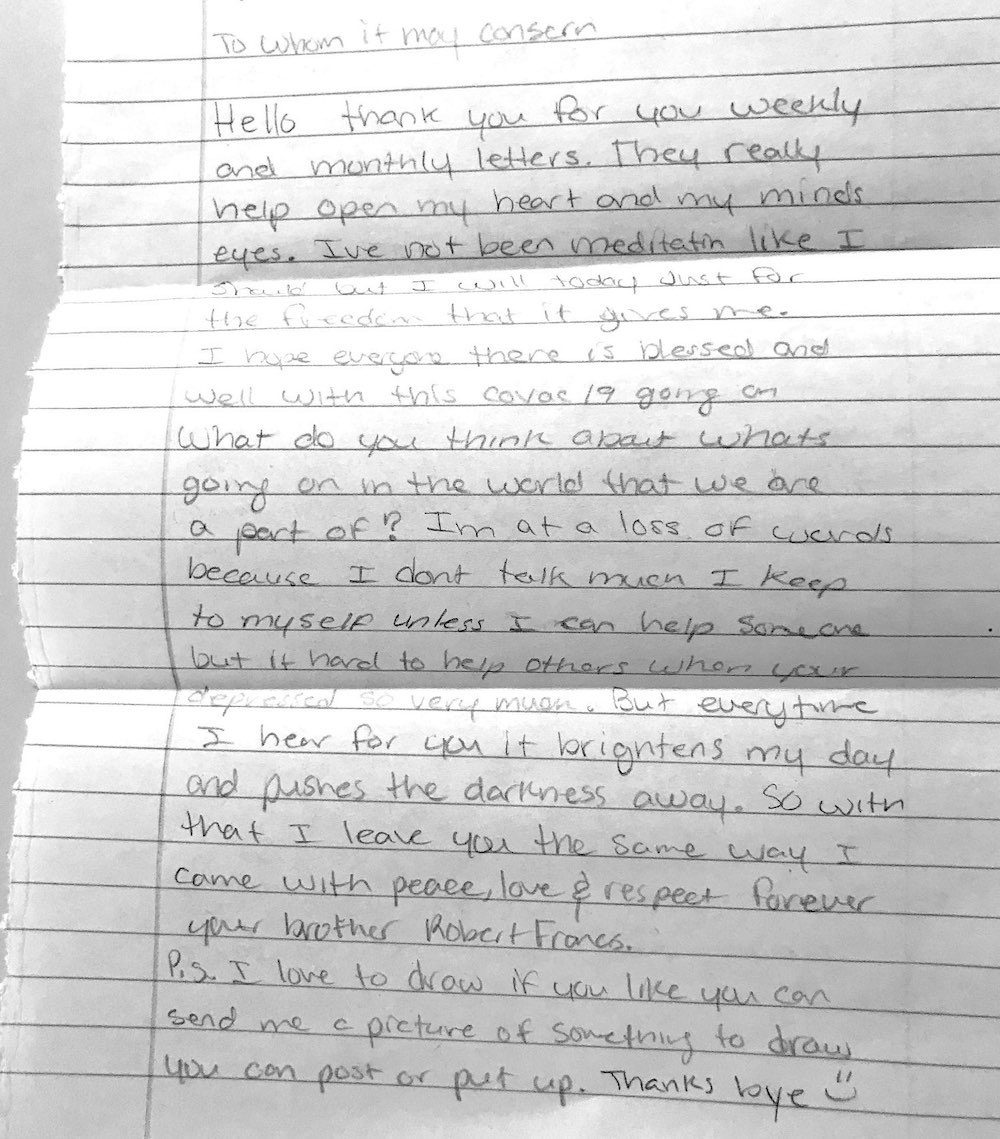 To whom it may consern
Hello thank you for you weekly
and monthly letters. They really
help open my heart and my minds
eyes. Ive not been meditatin like I
should but I will today Just for
the freedom that it gives me.
I hope everyone there is blessed and
well with this 19 going on
What do you think about whats
going on in the world that we are
a part of? Im at a loss of words
because I dont talk much I keep
to myself unless I can help someone
but it hard to help others when your
depressed so very much. But everytime
I hear for you it brightens my day
and pushes the darkness away. So with
that I leave you the same way I
came with peace, love & respect forever
your brother Robert Francs.
P.s. I love to draw if you like you can
send me a picture of something to draw
you can post or put up. Thanks bye